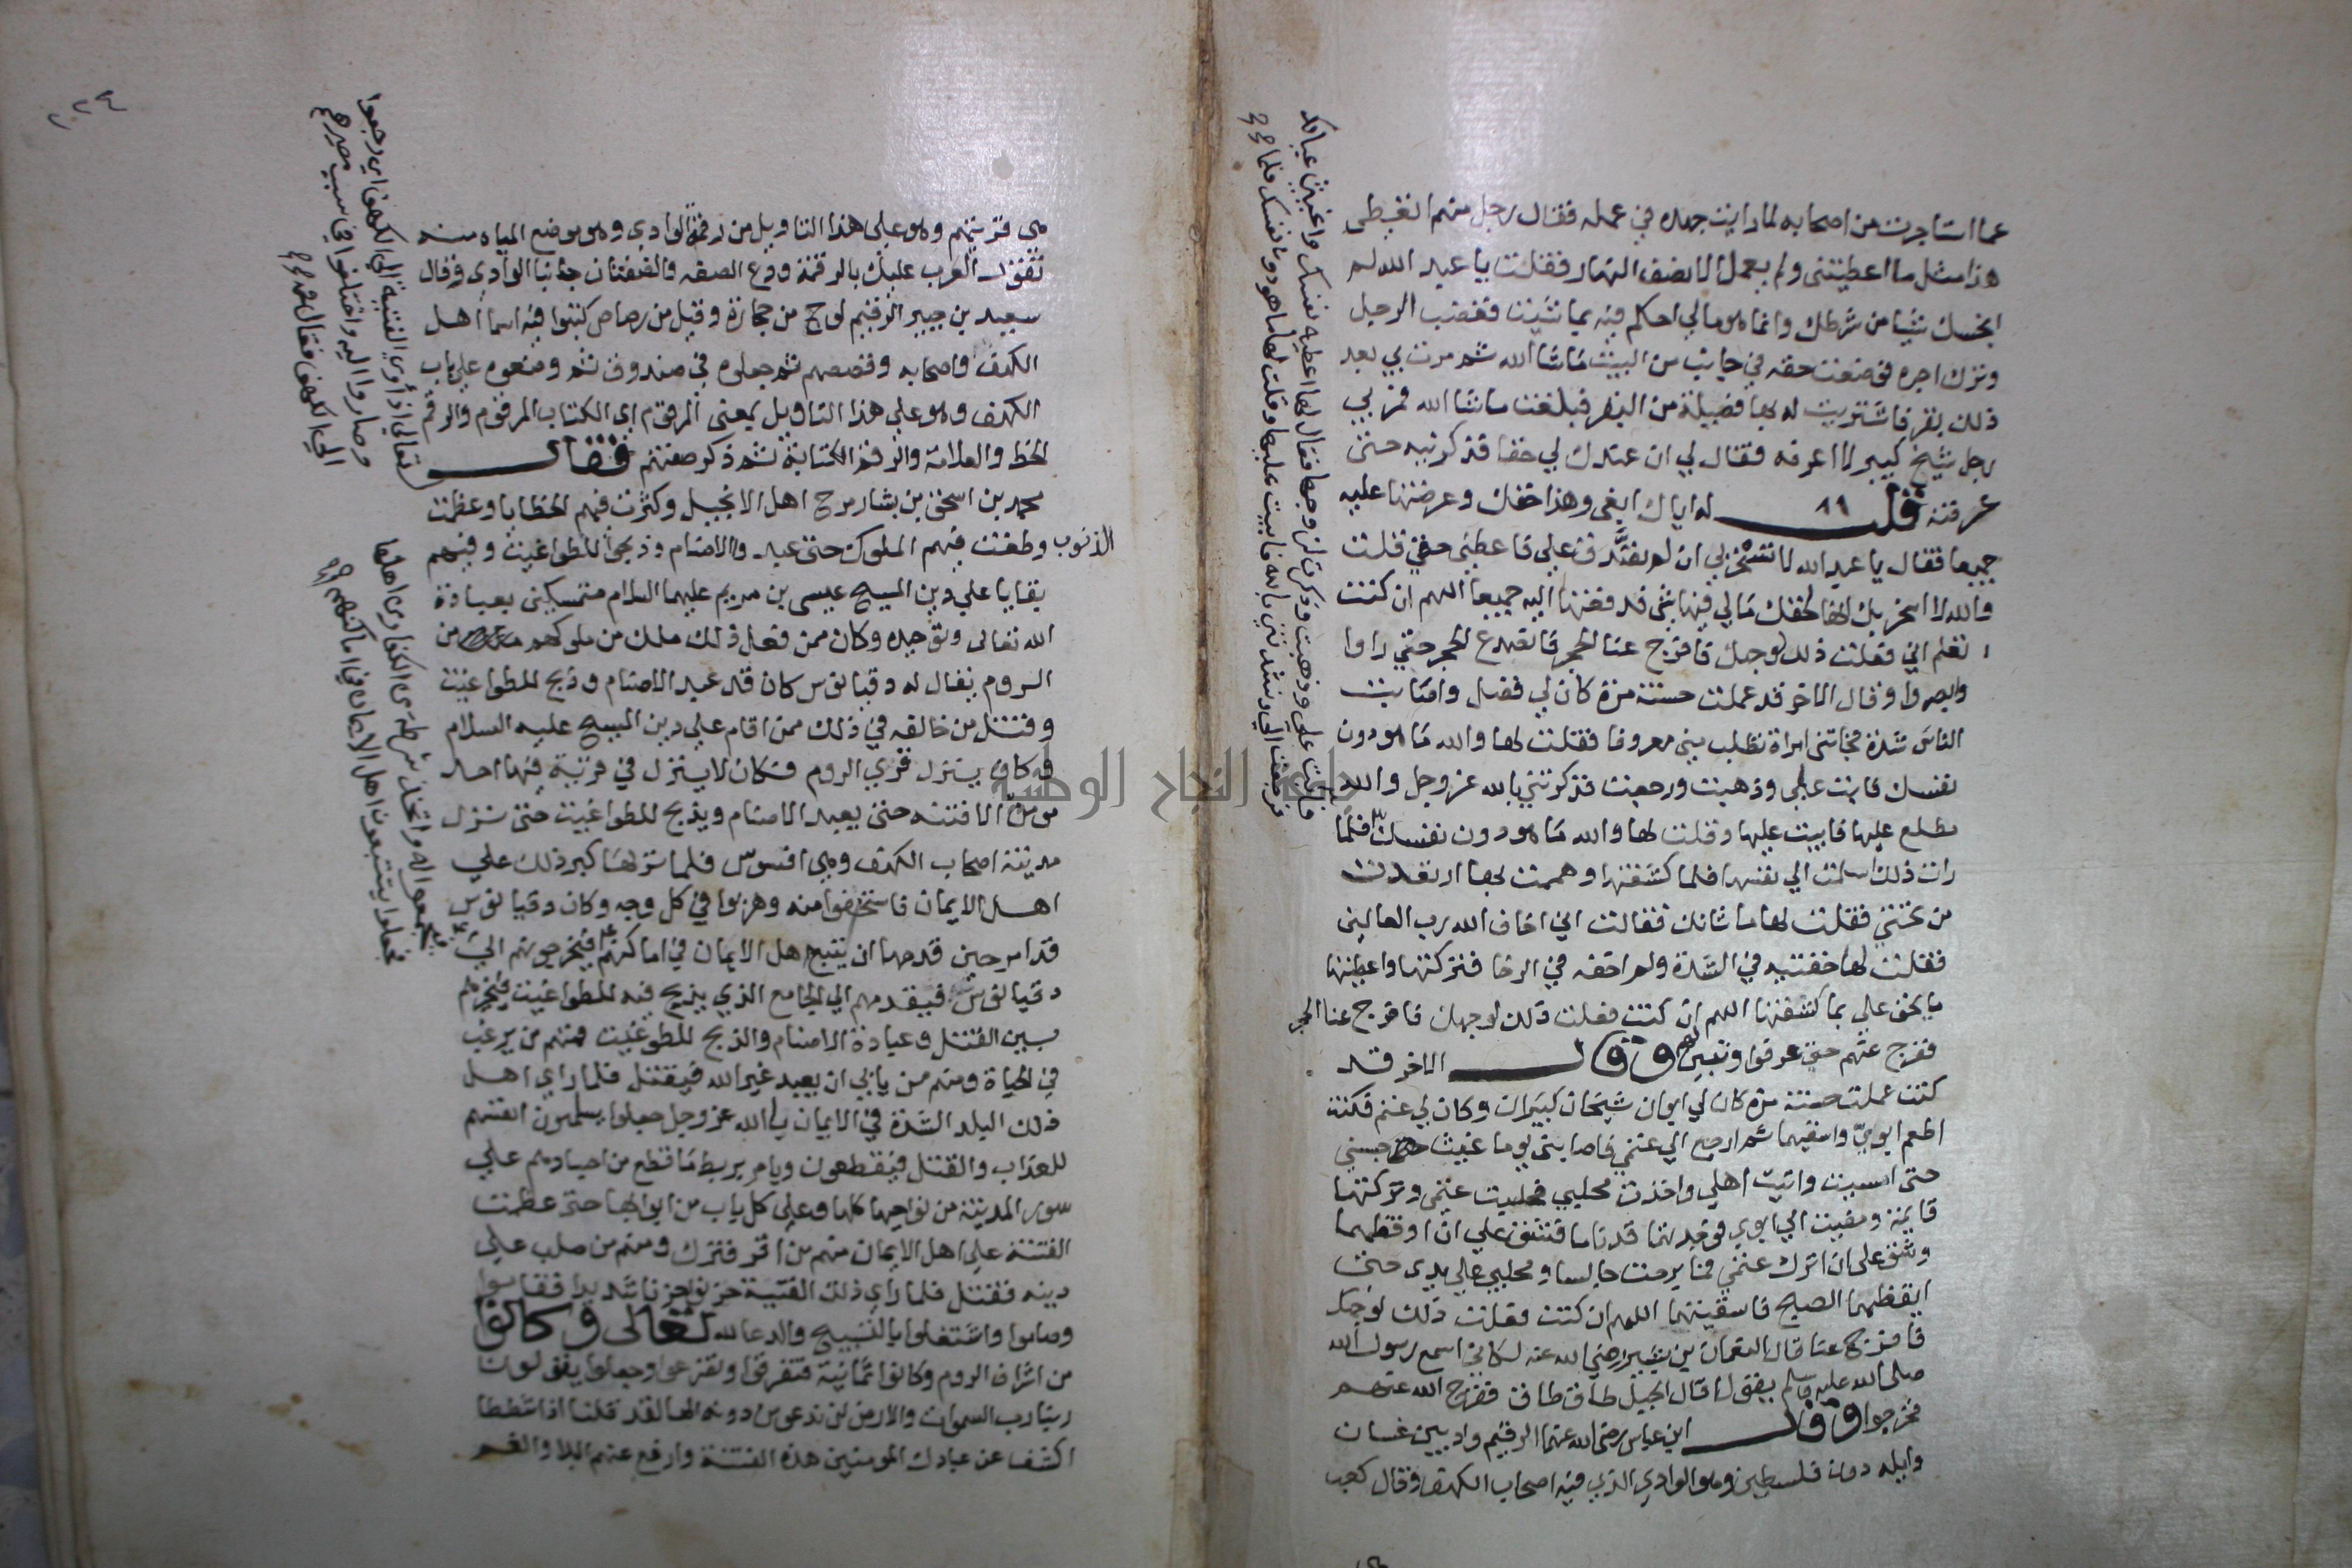 عما استاجرت من اصحابه لما رايت جهده في عمله فقال رجل منهم اتعطي
هذا مثل ما اعطيتني ولم يعمل الا نصف النهار فقلت يا عبد الله لم
ابخسك شيا من شرطك وانما هو مالي احكم فيه بما شيت فغضب الرجل
وترك اجره فوضعت حقه في جانب من البيت ما شا الله ثم مرت بي بعد
ذلك بقر فاشتريت له بها فصيلة من البقر فبلغت ما شا الله فمر بي
رجل شيخ كبير لا اعرفه فقال لي ان عندك لي حقا فذكرنيه حتى
عرفته قلت له اياك ابغي وهذا حقك وعرضتها عليه
جميعا فقال يا عبد الله لا تسخر بي ان لم تتصدق علي فاعطني حقي قلت
والله لا اسخر بك انها لحقك ما لي فيها شي فدفعتها اليه جميعا اللهم ان كنت
تعلم اني فعلت ذلك لوجهك فافرج عنا الحجر فانصدع الحجر حتي راوا
وابصروا وقال الاخر قد عملت حسنة مرة كان لي فضل واصابت
الناس شدة فجاتني امراة تطلب مني معروفا فقلت لها والله ما هو دون
نفسك فابت علي وذهبت ورجعت فذكرتني بالله عز وجل والله
مطلع عليها فابيت عليها وقلت لها والله ما هو دون نفسك فلما
رات ذلك اسلمت الي نفسها فلما كشفتها وهممت بها ارتعدت
من تحتي فقلت لها ما شانك فقالت اني اخاف الله رب العالمين
فقلت لها خفتيه في الشدة ولم اخفه في الرخا فتركتها واعطيتها
ما يحق علي بما كشفتها اللهم ان كنت فعلت ذلك لوجهك فافرج عنا الحجر
ففرج عنهم حتي عرفوا وتبين لهم وقال الاخر قد
كنت عملت حسنة مرة كان لي ابوان شيخان كبيران وكان لي غنم فكنت
اطعم ابوي واسقيهما ثم ارجع الي غنمي فاصابني يوما غيث حبسني
حتى امسيت واتيت اهلي واخذت محلبي فحلبت غنمي وتركتها
قايمة ومضيت الي ابوي فوجدتهما قد ناما فشق علي ان اوقظهما
وشق علي ان اترك غنمي فما برحت جالسا ومحلبي علي يدي حتى
ايقظهما الصبح فاسقيتهما اللهم ان كنت فعلت ذلك لوجهك
فافرج عنا قال النعمان بن بشير رضي الله عنه لكاني اسمع رسول الله
صلى الله عليه وسلم يقول قال الجبل طاق طاق ففرج الله عنهم
فخرجوا وقال ابن عباس رضي الله عنهما الرقيم واد بين غسان
وايله دون فلسطين وهو الوادي الذي فيه اصحاب الكهف وقال كعب
فاتت علي وذهبت وذكرت لزوجها فقال لها اعطيه نفسك واغيثي عيالك
فرجعت الي ونشدتني بالله فابيت عليها وقلت لها ما هو دون نفسك فلما
٢٤
هي قريتهم وهو علي هذا التاويل من رقمة الوادي وهو موضع المياه منه
تقول العرب عليك بالرقمة ودع الضفه والضفتان جانبا الوادي وقال
سعيد بن جبير الرقيم لوح من حجارة وقيل من رصاص كتبوا فيه اسما اهل
الكهف واصحابه وقصصهم ثم جعلوه في صندوق ثم وضعوه علي باب
الكهف وهو علي هذا التاويل بمعنى المرقوم اي الكتاب المرقوم والرقم
الخط والعلامة والرقم الكتابة ثم ذكر صفتهم فقال
محمد بن اسحق بن بشار مرج اهل الانجيل وكثرت فيهم الخطايا وعظمت
الذنوب وطغت فيهم الملوك حتى عبدوا الاصنام وذبحوا للطواغيت وفيهم
بقايا علي دين المسيح عيسى بن مريم عليهما السلام متمسكين بعبادة
الله تعالى وتوحيده وكان ممن فعل ذلك ملك من ملوكهم من
الروم يقال له دقيانوس كان قد عبد الاصنام وذبح للطواغيت
وقتل من خالفه في ذلك ممن اقام علي دين المسيح عليه السلام
وكان ينزل قري الروم فكان لا ينزل في قرية فيها احد
مومن الا فتنه حتى يعبد الاصنام ويذبح للطواغيت حتى نزل
مدينة اصحاب الكهف وهي افسوس فلما نزلها كبر ذلك علي
اهل الايمان فاستخفوا منه وهربوا في كل وجه وكان دقيانوس
قد امر حين قدمها ان يتبع اهل الايمان في اماكنهم فيخرجونهم الى
دقيانوس فيقدمهم الي الجامع الذي يذبح فيه للطواغيت فيخيرهم
بين القتل وعبادة الاصنام والذبح للطوغيت فمنهم من يرغب
في الحياة ومنهم من يابي ان يعبد غير الله فيقتل فلما راي اهل
ذلك البلد الشدة في الايمان بالله عز وجل جعلوا يسلمون انفسهم
للعذاب والقتل فيقطعون ويامر بربط ما قطع من اجسادهم علي
سور المدينة من نواحيها كلها وعلي كل باب من ابوابها حتى عظمت
الفتنة علي اهل الايمان منهم من اقر فترك ومنهم من صلب علي
دينه فقتل فلما راي ذلك الفتية حزنوا حزنا شديدا فقاموا
وصاموا واشتغلوا بالتسبيح والدعا لله تعالى وكانوا
من اشراف الروم وكانوا ثمانية فتفرقوا وتضرعوا وجعلوا يقولون
ربنا رب السموات والارض لن ندعو من دونه الها لقد قلنا اذا شططا
اكشف عن عبادك المومنين هذه الفتنة وارفع عنهم البلا والغم
تعالي اذ أوي الفتية الي الكهف اي رجعوا
وصاروا اليه واختلفوا في سبب مصيرهم
الي الكهف فقال محمد
فجمعوا له واتخذ شرطة من الكفار من اهلها
فجعلوا يتتبعون اهل الايمان في اماكنهم
جامعة النجاح الوطنية